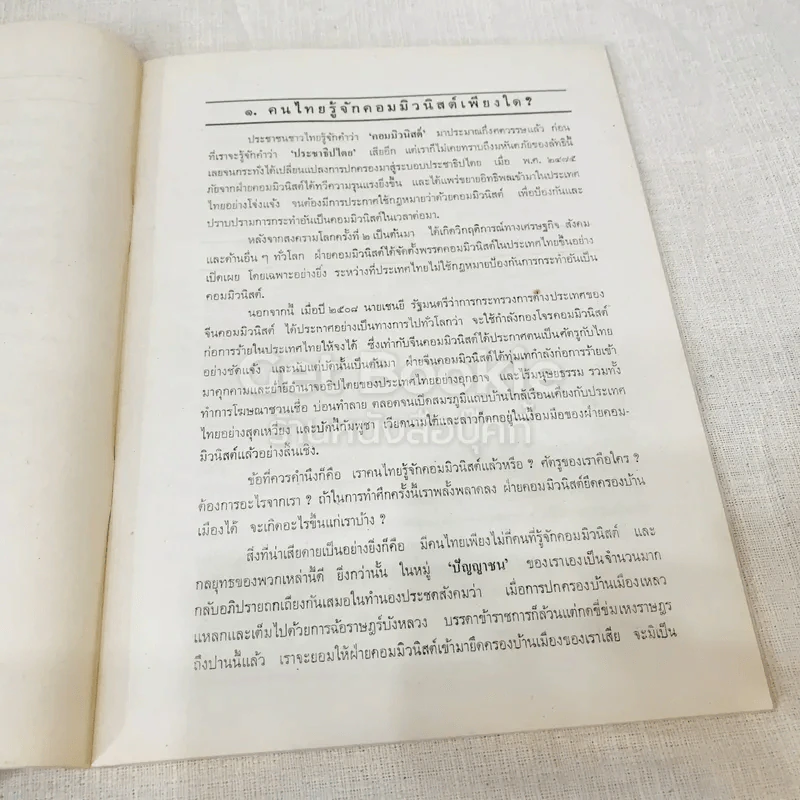 ๑. คนไทยรู้จักคอมมิวนิสต์เพียงใด ?
ประชาชนชาวไทยรู้จักคำว่า 'คอมมิวนิสต์' มาประมาณกึ่งศตวรรษแล้ว ก่อน
ที่เราจะรู้จักคำว่า 'ประชาธิปไตย' เสียอีก แต่เราก็ไม่เคยทราบถึงมหันตภัยของลัทธินี้
เลยจนกระทั่งได้เปลี่ยนแปลงการปกครองมาสู่ระบอบประชาธิปไตย เมื่อ พ.ศ. ๒๔๗๕
ภัยจากฝ่ายคอมมิวนิสต์ได้ทวีความรุนแรงยิ่งขึ้น และได้แพร่ขยายอิทธิพลเข้ามาในประเทศ
ไทยอย่างโจ่งแจ้ง จนต้องมีการประกาศใช้กฎหมายว่าด้วยคอมมิวนิสต์ เพื่อป้องกันและ
ปราบปรามการกระทำอันเป็นคอมมิวนิสต์ในเวลาต่อมา
หลังจากสงครามโลกครั้งที่ ๒ เป็นต้นมา ได้เกิดวิกฤติการณ์ทางเศรษฐกิจ สังคม
และด้านอื่น ๆ ทั่วโลก ฝ่ายคอมมิวนิสต์ได้จัดตั้งพรรคคอมมิวนิสต์ในประเทศไทยขึ้นอย่าง
เปิดเผย โดยเฉพาะอย่างยิ่ง ระหว่างที่ประเทศไทยไม่ใช้กฎหมายป้องกันการกระทำอันเป็น
คอมมิวนิสต์.
นอกจากนี้ เมื่อปี ๒๕๐๘ นายเชนยี รัฐมนตรีว่าการกระทรวงการต่างประเทศของ
จีนคอมมิวนิสต์ ได้ประกาศอย่างเป็นทางการไปทั่วโลกว่า จะใช้กำลังกองโจรคอมมิวนิสต์
ก่อการร้ายในประเทศไทยให้จงได้ ซึ่งเท่ากับจีนคอมมิวนิสต์ได้ประกาศตนเป็นศัตรูกับไทย
อย่างชัดแจ้ง และนับแต่บัดนั้นเป็นต้นมา ฝ่ายจีนคอมมิวนิสต์ได้ทุ่มเทกำลังก่อการร้ายเข้า
มาคุกคามและย่ำยีอำนาจอธิปไตยของประเทศไทยอย่างอุกอาจ และไร้มนุษยธรรม รวมทั้ง
ทำการโฆษณาชวนเชื่อ บ่อนทำลาย ตลอดจนเปิดสมรภูมิแถบบ้านใกล้เรือนเคียงกับประเทศ
ไทยอย่างสุดเหวี่ยง และบัดนี้กัมพูชา เวียดนามใต้และลาวก็ตกอยู่ในเงื้อมมือของฝ่ายคอม-
มิวนิสต์แล้วอย่างสิ้นเชิง.
ข้อที่ควรคำนึงก็คือ เราคนไทยรู้จักคอมมิวนิสต์แล้วหรือ ? ศัตรูของเราคือใคร ?
ต้องการอะไรจากเรา ? ถ้าในการทำศึกครั้งนี้เราพลั้งพลาดลง ฝ่ายคอมมิวนิสต์ยึดครองบ้าน
เมืองได้ จะเกิดอะไรขึ้นแก่เราบ้าง ?
สิ่งที่น่าเสียดายเป็นอย่างยิ่งก็คือ มีคนไทยเพียงไม่กี่คนที่รู้จักคอมมิวนิสต์ และ
กลยุทธของพวกเหล่านี้ดี ยิ่งกว่านั้น ในหมู่ 'ปัญญาชน' ของเราเองเป็นจำนวนมาก
กลับอภิปรายถกเถียงกันเสมอในทำนองประชดสังคมว่า เมื่อการปกครองบ้านเมืองเหลว
แหลกและเต็มไปด้วยการฉ้อราษฎร์บังหลวง บรรดาข้าราชการก็ล้วนแต่กดขี่ข่มเหงราษฎร
ถึงปานนี้แล้ว เราจะยอมให้ฝ่ายคอมมิวนิสต์เข้ามายึดครองบ้านเมืองของเราเสีย จะมิเป็น